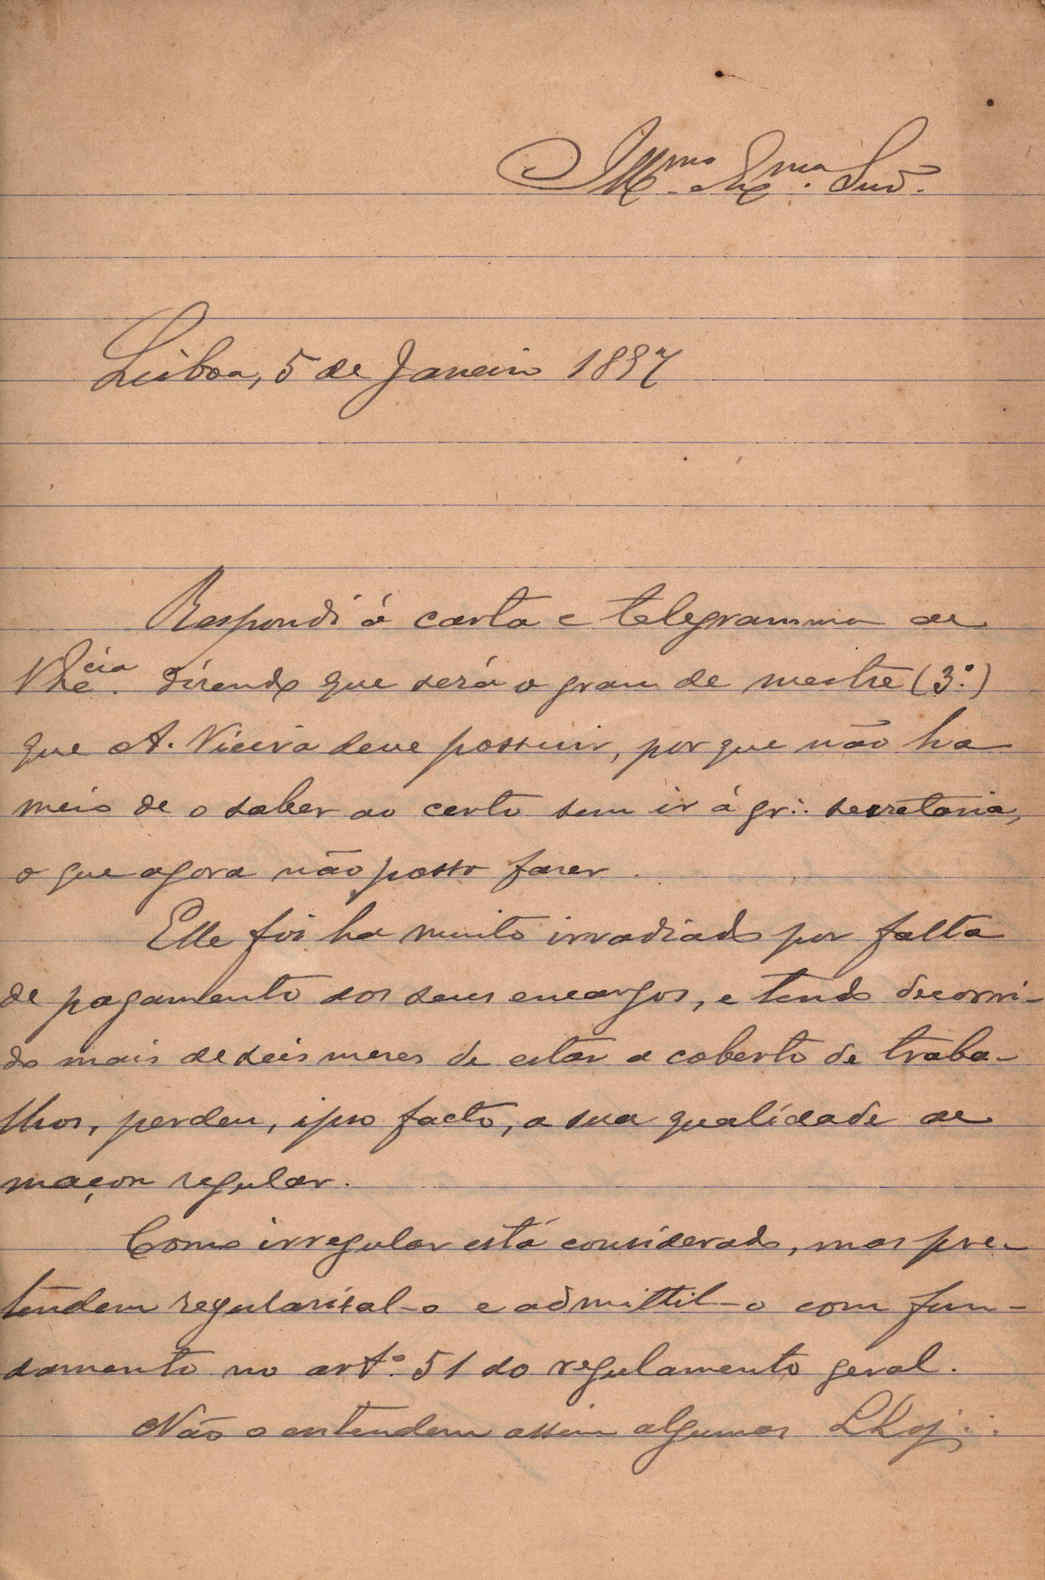 Illmo. Exma. Snr.
Lisboa, 5 de Janeiro 1897
Respondi á carta e telegramma de
V. Excia. dizendo que será o grau de mestre (3.º)
que A. Vieira deve possuir, por que não ha
meio de o saber ao certo sem ir á gr∴ secretaria,
o que agora não posso fazer.
Elle foi ha muito irradiado por falta
de pagamento dos seus encargos, e tendo decorri-
do mais de seis mezes de estar a coberto de traba-
lhos, perdeu, ipso facto, a sua qualidade de
maçon regular.
Como irregular está considerado, mas pre-
tendem regularisal-o e admittil-o com fun-
damento no art.º 51 do regulamento geral.
Não o entendem assim algumas LLoj∴